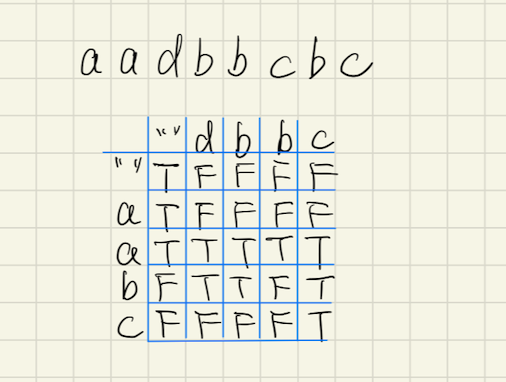 a a d b b c b c
"" d b b c
"" T F F F F
a T F F F F
a T T T T T
b F T T F T
c F F F F T